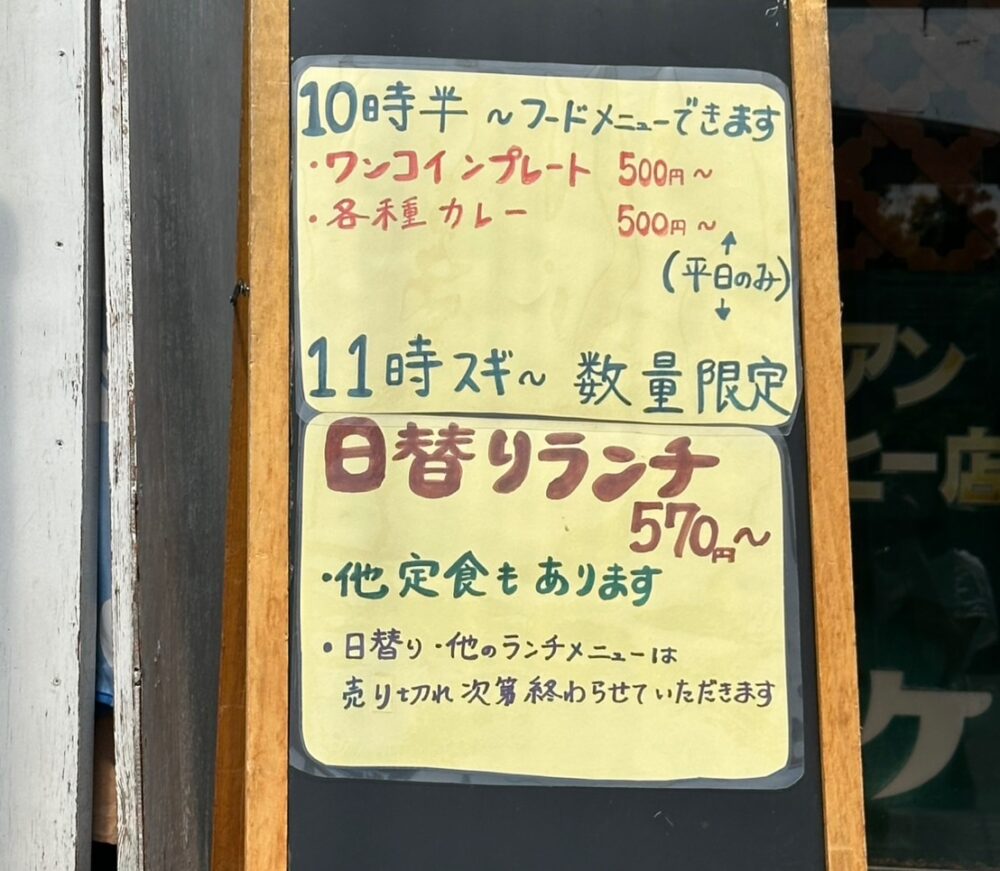 10時半 ～フードメニューできます
・ワンコインプレート 500円～
・各種カレー 500円～
(平日のみ)
11時スギ～ 数量限定
日替りランチ
570円～
・他定食もあります
・日替り・他のランチメニューは
売り切れ次第終わらせていただきます
アン
ヒー店
ケ